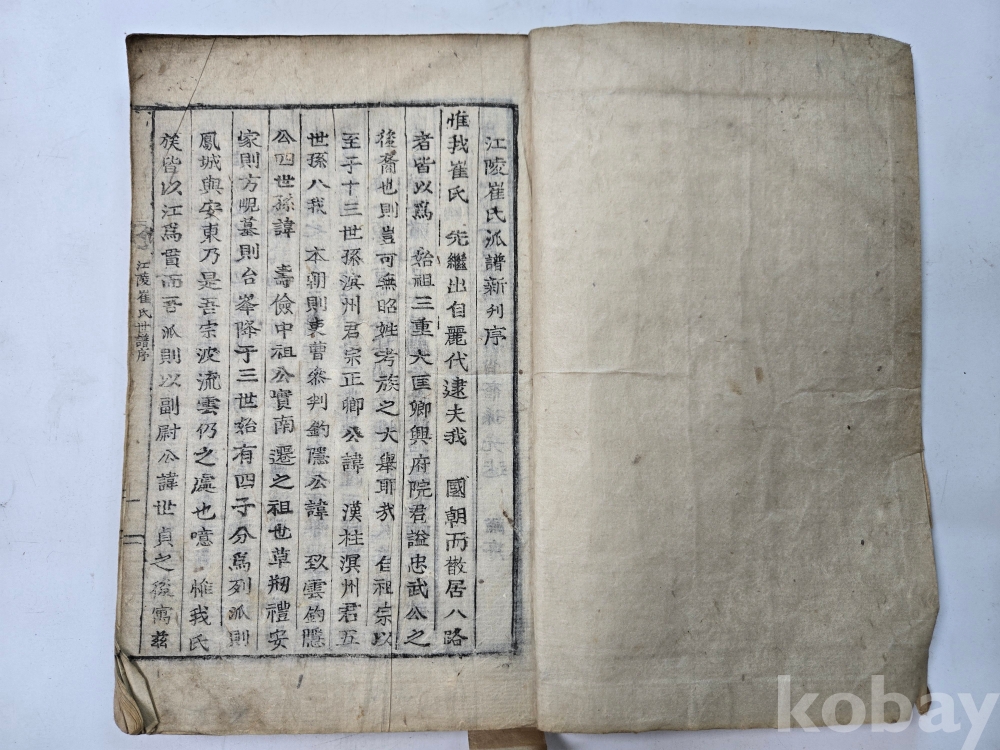 江陵崔氏派譜新刊序
惟我崔氏 先繼出自麗代逮夫我 國朝而散居八路
者皆以爲 始祖三重大匡卿興府院君諡忠武公之
後裔也則豈可無昭姓考族之大舉耶我 自祖宗以
至于十三世孫溟州君宗正卿公諱 漢柱溟州君五
世孫入我 本朝則吏曹參判釣隱公諱 致雲釣隱
公四世孫諱 壽儉中祖公實南遷之祖也草刱禮安
家則方 墓則台峯降于三世始有四子分爲列派則
鳳城與安東乃是吾宗波流雲仍之處也噫 惟我氏
族皆以江爲貫而吾派則以副尉公諱世貞之後寓茲
江陵崔氏世譜序
kobay